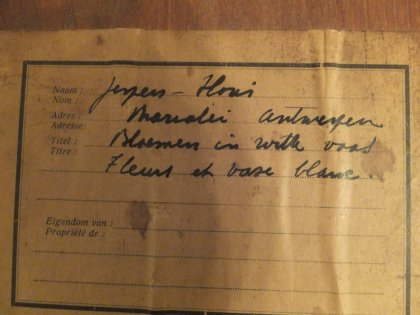 Naam :
Nom :
Adres : Antwerpen
Adresse:
Titel : Bloemen in witte vaas
Titre : Fleurs et vase blanc.
Eigendom van :
Propriété de :